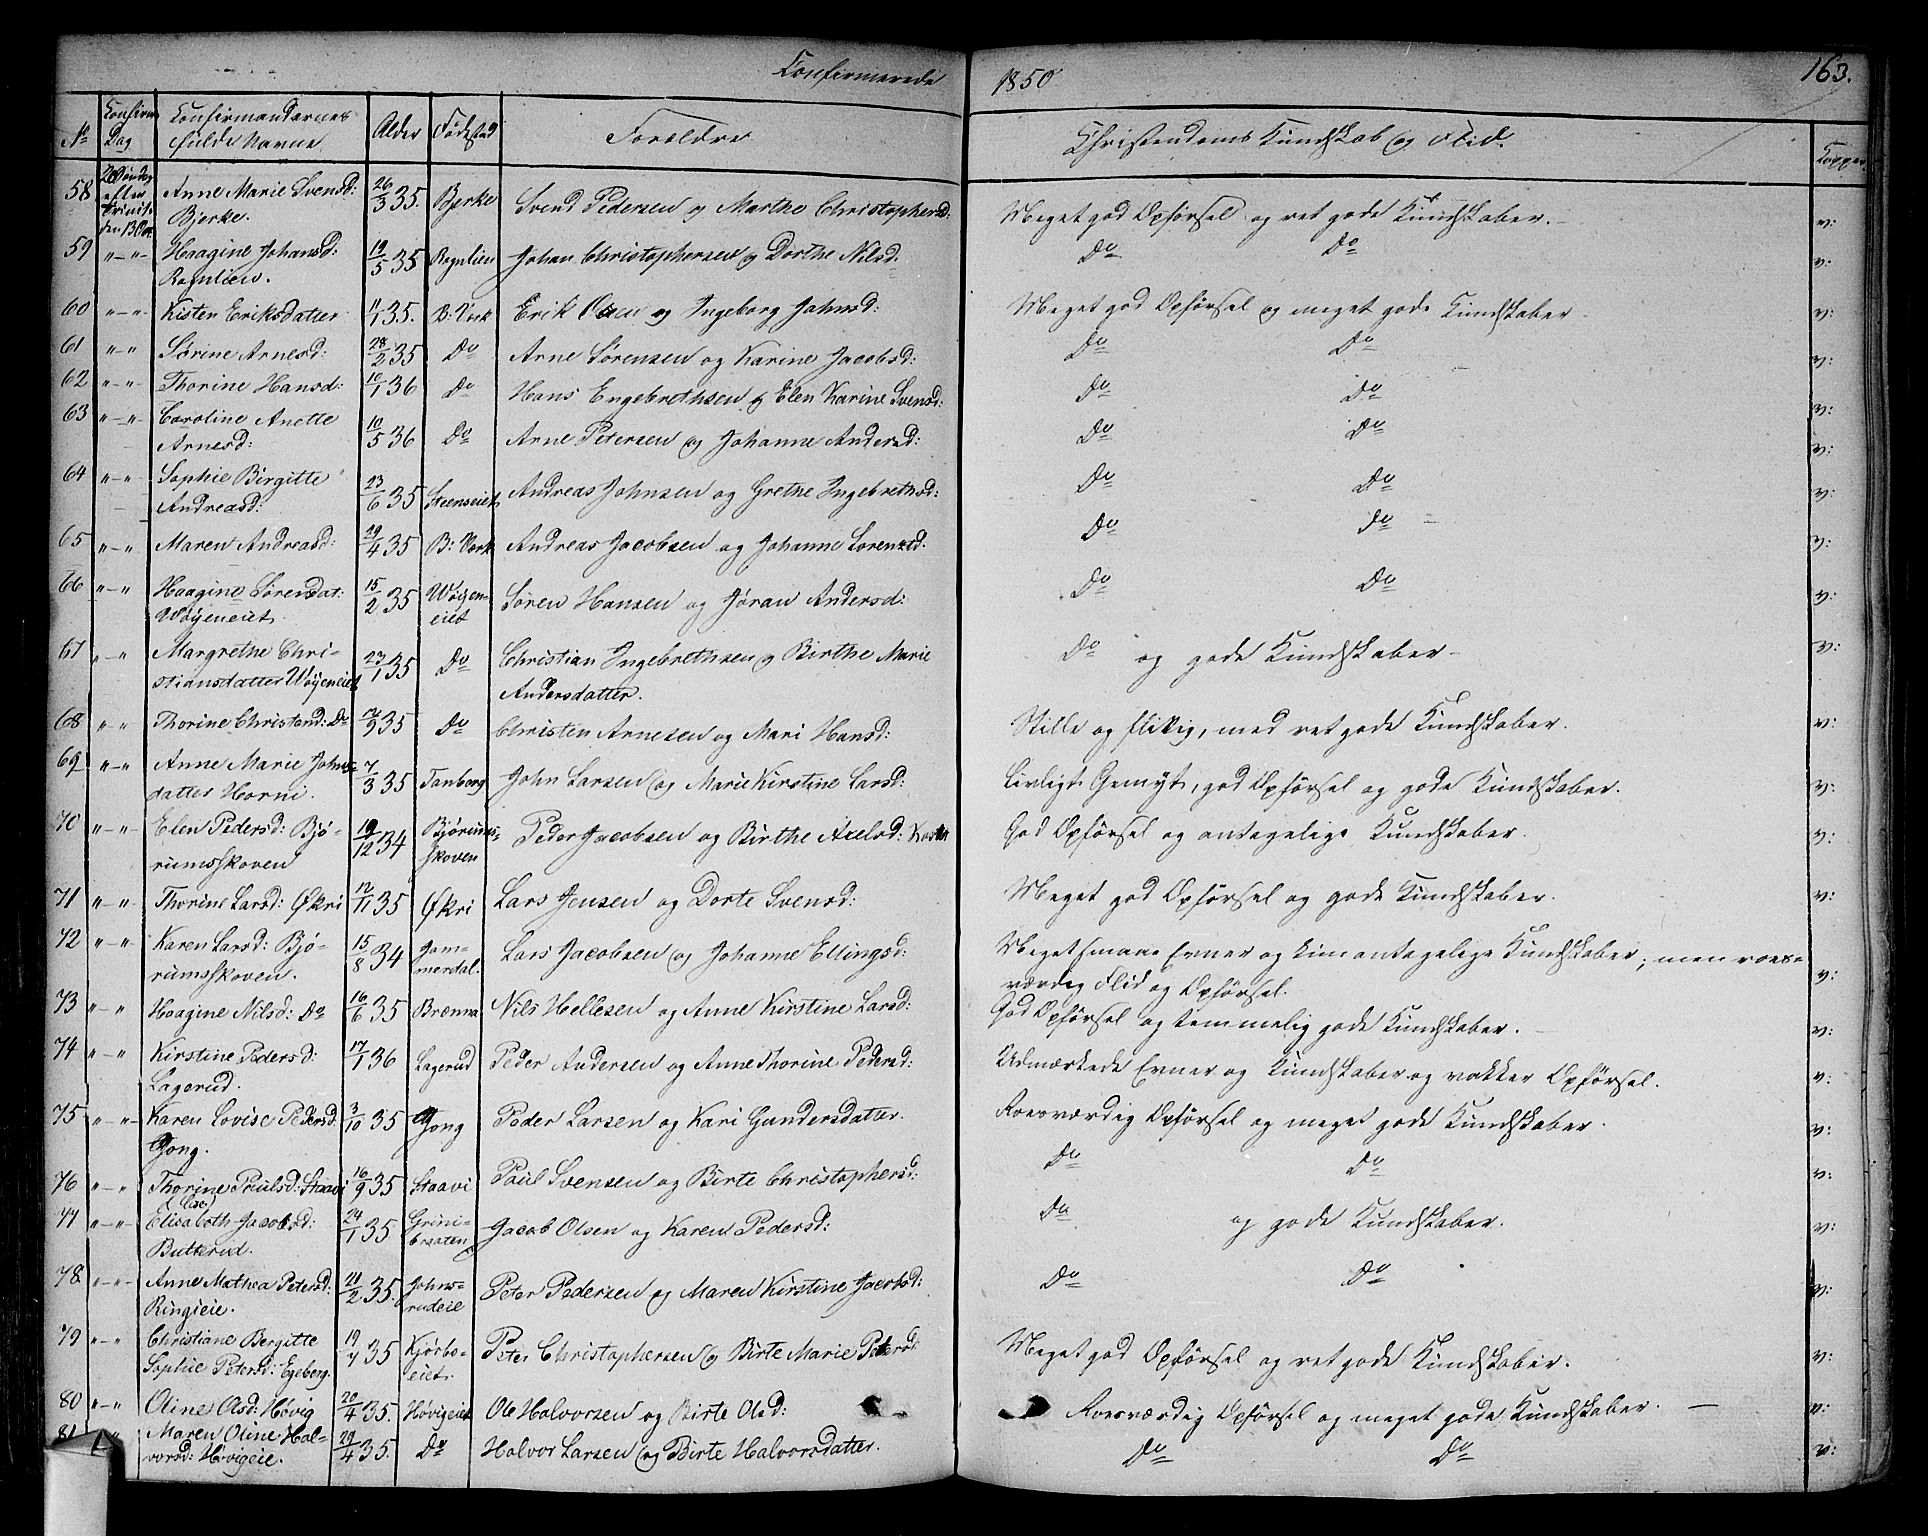 Confirmerede
1850
163.
No
Confirm: Dag
Confirmandernes fulde Navne
Alder
Fødested
Forældre
Christendoms Kundskab og Flid.
Kopper.
58 20 Søndag efter Trinit: den 13 Oct Anne Marie Svensd: Bjerke. 26/3 35. Bjerke Svend Pedersen og Marthe Christophersd: Meget god Opførsel og ret gode Kundskaber. v:
59 "-" Haagine Johansd: Rognlien. 19/5 35 Rognlien Johan Christophersen og Dorthe Nilsd. Do Do v:
60 "-" Kisten Eriksdatter 11/1 35. B: Værk Erik Olsen og Ingeborg Johnsd: Meget god Opførsel og meget gode Kundskaber v:
61 "-" Sørine Arnesd: 28/2 35 Do Arne Sørensen og Karine Jacobsd: Do Do v:
62 "-" Thorine Hansd: 10/1 36 Do Hans Engebrethsen og Elen Karine Svensd: Do Do v:
63 "-" Caroline Anette Arnesd: 10/5 36 Do Arne Petersen og Johanne Andersd: Do Do v:
64 "-" Sophie Birgitte Andreasd: 23/6 35 Steenseiet Andreas Johnsen og Grethe Ingebrethsd: Do Do v:
65 "-" Maren Andreasd: 29/4 35 B: Værk Andreas Jacobsen og Johanne Lorentzd. Do Do v:
66 "-" Haagine Sørensdat: Wøyeneiet. 15/2 35 Wøyeneiet Søren Hansen og Jøran Andersd: Do Do v:
67 "-" Margrethe Christiansdatter Wøyeneiet 23/1 35 Do Christian Ingebrethsen og Birthe Marie Andersdatter. Do og gode Kundskaber v:
68 "-" Thorine Christend: Do 12/9 35 Do Christen Arnesen og Mari Hansd: Stille og flittig, med ret gode Kundskaber. v:
69 "-" Anne Marie Johnsdatter Horni. 7/3 35 Tanberg John Larsen og Marie Kirstine Larsd: Livligt Gemyt, god Opførsel og gode Kundskaber. v:
70 "-" Elen Pedersd: Bjørumsskoven 19/12 34 Bjørumsskoven Peder Jacobsen og Birthe Axelsd: God Opførsel og antagelige Kundskaber. v:
71 "-" Thorine Larsd: Økri 12/11 35 Økri Lars Jensen og Dorte Svensd: Meget god Opførsel og gode Kundskaber. v:
72 "-" Karen Larsd: Bjørumsskoven. 15/8 34 Jammerdal. Lars Jacobsen og Johanne Ellingsd: Meget smaae Evner og kun antagelige Kundskaber; men roesværdig Flid og Opførsel. v:
73 "-" Haagine Nilsd: Do 16/6 35 Brænna Nils Hellesen og Anne Kirstine Larsd: God Opførsel og temmelig gode Kundskaber. v:
74 "-" Kirstine Pedersd: Lagerud. 17/1 36 Lagerud Peder Andersen og Anne Thorine Pedersd: Udmærkede Evner og Kundskaber og vakker Opførsel. v:
75 "-" Karen Lovise Pedersd: Gjong. 3/10 35 Gjong Peder Larsen og Kari Gundersdatter. Roesværdig Opførsel og meget gode Kundskaber. v:
76 "-" Thorine Paulsd: Staavi 16/9 35 Staavi Paul Svensen og Birte Christophersd: Do Do v:
77 "-" Elisabeth (Lise) Jacobsd: Butterud. 24/1 35. Grinibraaten Jacob Olsen og Karen Pedersd: Do og gode Kundskaber. v:
78. "-" Anne Mathea Petersd: Ringieie. 21/2 35. Johnsrudeie Peter Pedersen og Maren Kirstine Jacobsd: Do Do v:
79 "-" Christiane Bergitte Sophie Petersd: Egeberg. 19/7 35 Kjørboeiet. Peter Christophersen og Birte Marie Petersd: Meget god Opførsel og ret gode Kundskaber. v:
80 "-" Oline Olsd: Høvig 20/4 35. Høvigeiet Ole Halvorsen og Birte Olsd: Roesværdig Opførsel og meget gode Kundskaber. v:
81 Maren Oline Halvorsd: Høvigeie. 29/4 35. Do Halvor Larsen og Birte Halvorsdatter. Do Do v: